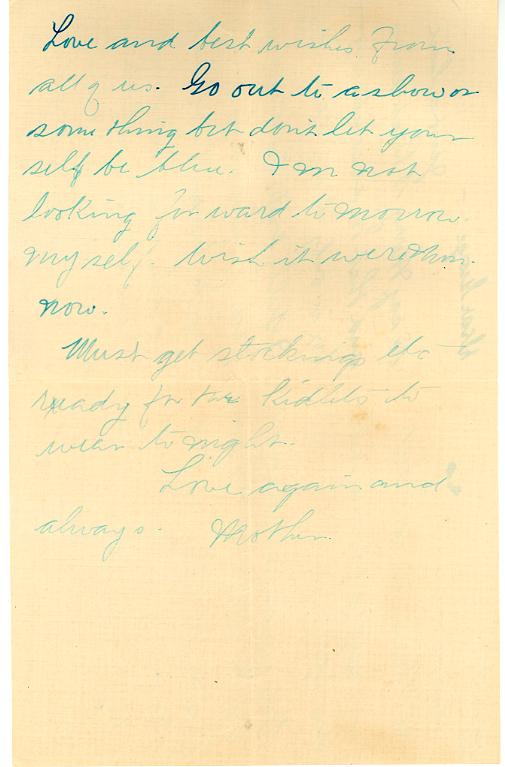 Love and best wishes from
all of us. Go out to a show or
something but don't let your
self be blue. I'm not
looking forward to morrow
myself. Wish it were
now.
Must get stockings etc
ready for the kidlets to
wear to night.
Love again and
always. Mother.